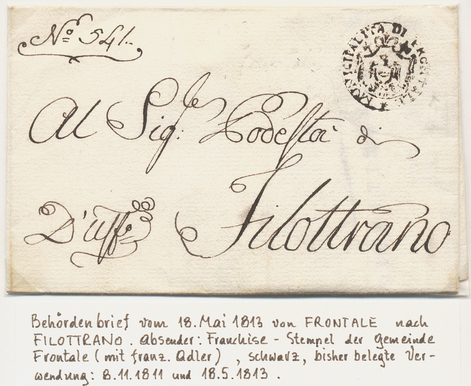 N.º 541.
MUNICIPALITÀ DI FRONTALE
Al Sig.r Podestà di
D'uff.o Filottrano
Behördenbrief vom 18. Mai 1813 von FRONTALE nach
FILOTTRANO. Absender: Franchise-Stempel der Gemeinde
Frontale (mit franz. Adler), schwarz, bisher belegte Ver-
wendung: B.11.1811 und 18.5.1813.